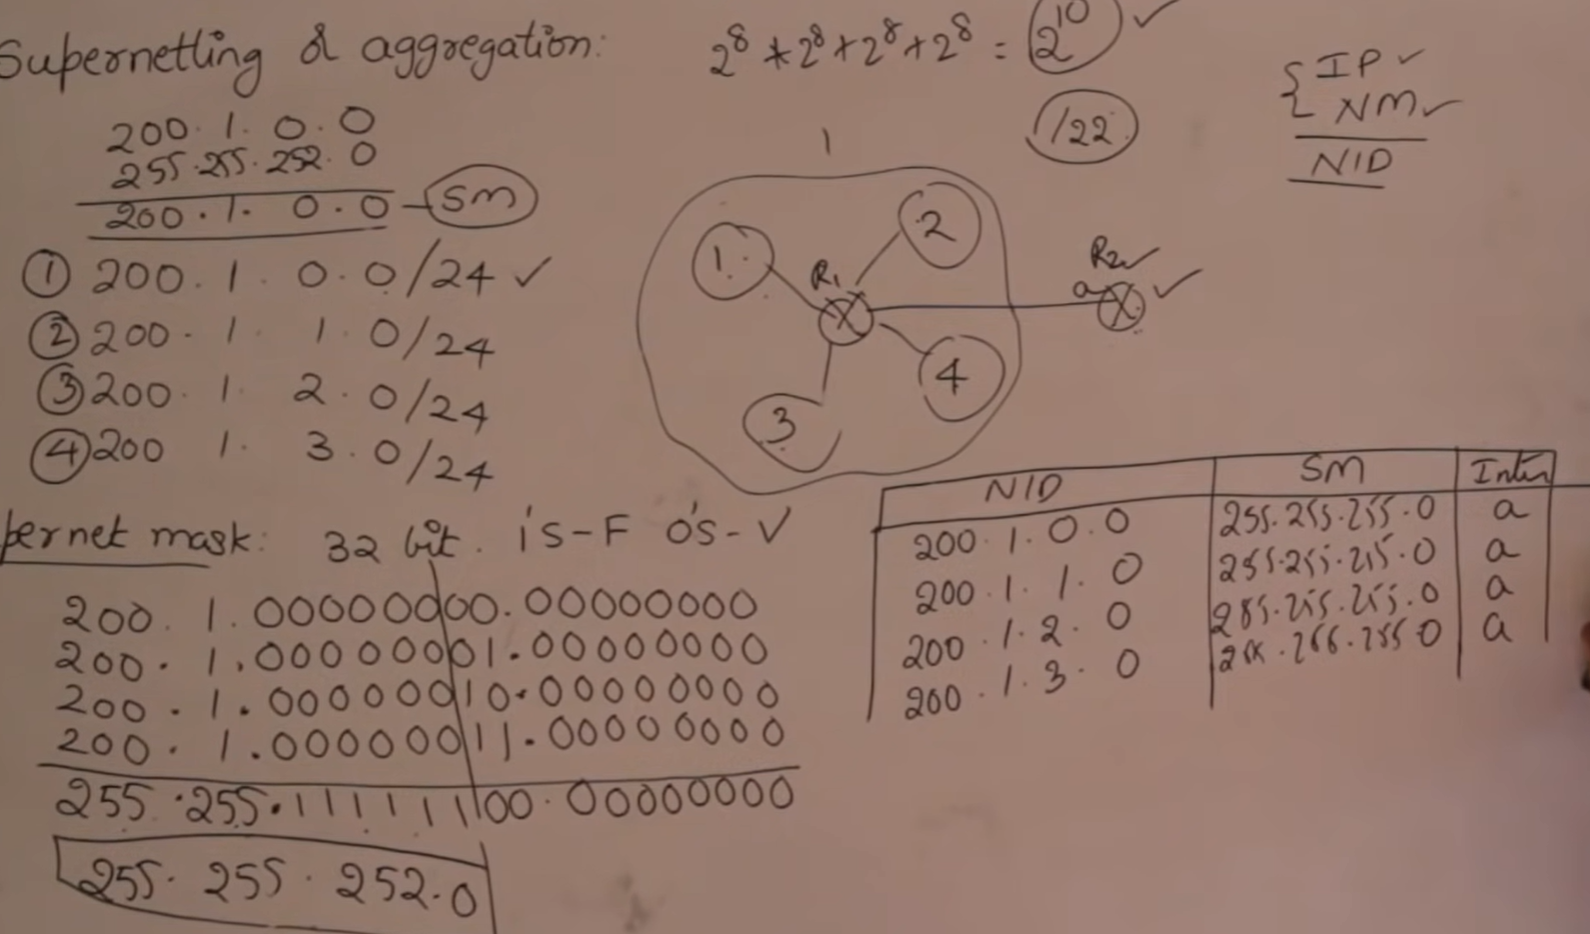 Supernetting & aggregation:
2^8 * 2^8 + 2^8 + 2^8 = 2^10 ✓
/22
{ IP ✓
NM ✓
NID
200. 1. 0. 0
255.255.252. 0
200. 1. 0. 0 - SM
① 200. 1. 0. 0/24 ✓
② 200. 1 1. 0/24
③ 200. 1. 2. 0/24
④ 200 1. 3. 0/24
1
1.
2
R1
R2 ✓
a
✓
3
4
pernet mask: 32 bit. 1's-F 0's-V
200. 1. 00000000.00000000
200. 1.00000001.00000000
200. 1.00000010.00000000
200. 1.00000011.00000000
255.255.11111100.00000000
255. 255. 252.0
NID SM
200. 1. 0. 0 255.255.255.0 a
200. 1. 1. 0 255.255.255.0 a
200. 1. 2. 0 255.255.255.0 a
200. 1. 3. 0 a